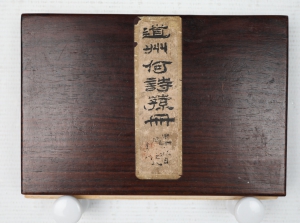 道州何詩孫冊